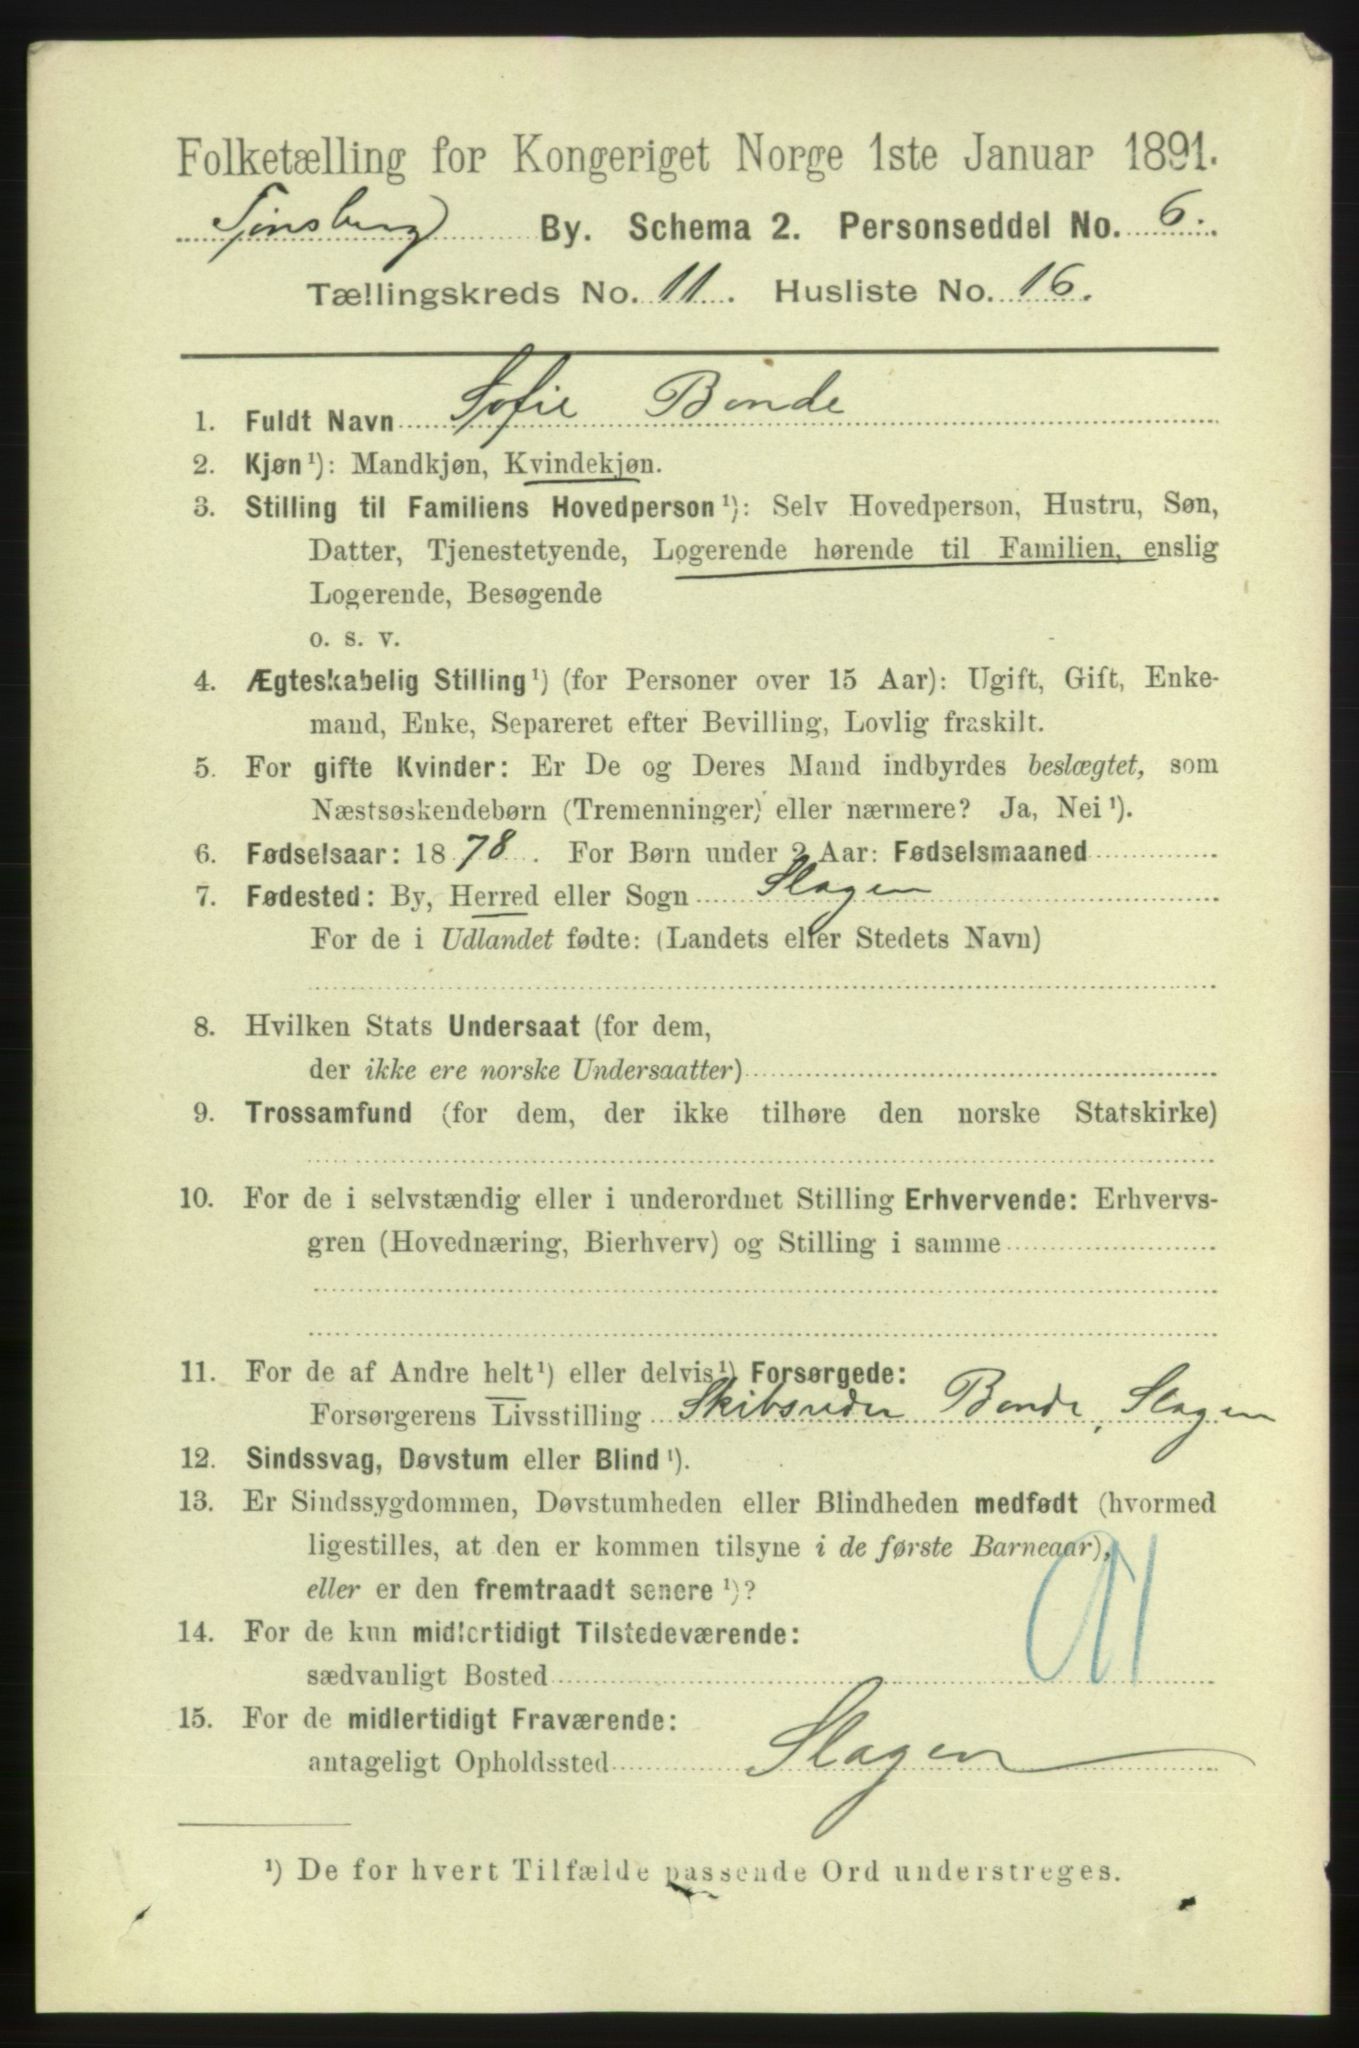 Folketælling for Kongeriget Norge 1ste Januar 1891.
Tønsberg By. Schema 2. Personseddel No. 6.
Tællingskreds No. 11. Husliste No. 16.
1. Fuldt Navn Sofie Bonde
2. Kjøn ¹): Mandkjøn, Kvindekjøn.
3. Stilling til Familiens Hovedperson ¹): Selv Hovedperson, Hustru, Søn,
Datter, Tjenestetyende, Logerende hørende til Familien, enslig
Logerende, Besøgende
o. s. v.
4. Ægteskabelig Stilling ¹) (for Personer over 15 Aar): Ugift, Gift, Enke-
mand, Enke, Separeret efter Bevilling, Lovlig fraskilt.
5. For gifte Kvinder: Er De og Deres Mand indbyrdes beslægtet, som
Næstsøskendebørn (Tremenninger) eller nærmere? Ja, Nei ¹).
6. Fødselsaar: 1878. For Børn under 2 Aar: Fødselsmaaned
7. Fødested: By, Herred eller Sogn Slagen
For de i Udlandet fødte: (Landets eller Stedets Navn)
8. Hvilken Stats Undersaat (for dem,
der ikke ere norske Undersaatter)
9. Trossamfund (for dem, der ikke tilhøre den norske Statskirke)
10. For de i selvstændig eller i underordnet Stilling Erhvervende: Erhvervs-
gren (Hovednæring, Bierhverv) og Stilling i samme
11. For de af Andre helt ¹) eller delvis ¹) Forsørgede:
Forsørgerens Livsstilling Skibsreder Bonde, Slagen
12. Sindssvag, Døvstum eller Blind ¹).
13. Er Sindssygdommen, Døvstumheden eller Blindheden medfødt (hvormed
ligestilles, at den er kommen tilsyne i de første Barneaar),
eller er den fremtraadt senere ¹)?
14. For de kun midlertidigt Tilstedeværende:
sædvanligt Bosted
15. For de midlertidigt Fraværende:
antageligt Opholdssted Slagen
¹) De for hvert Tilfælde passende Ord understreges.